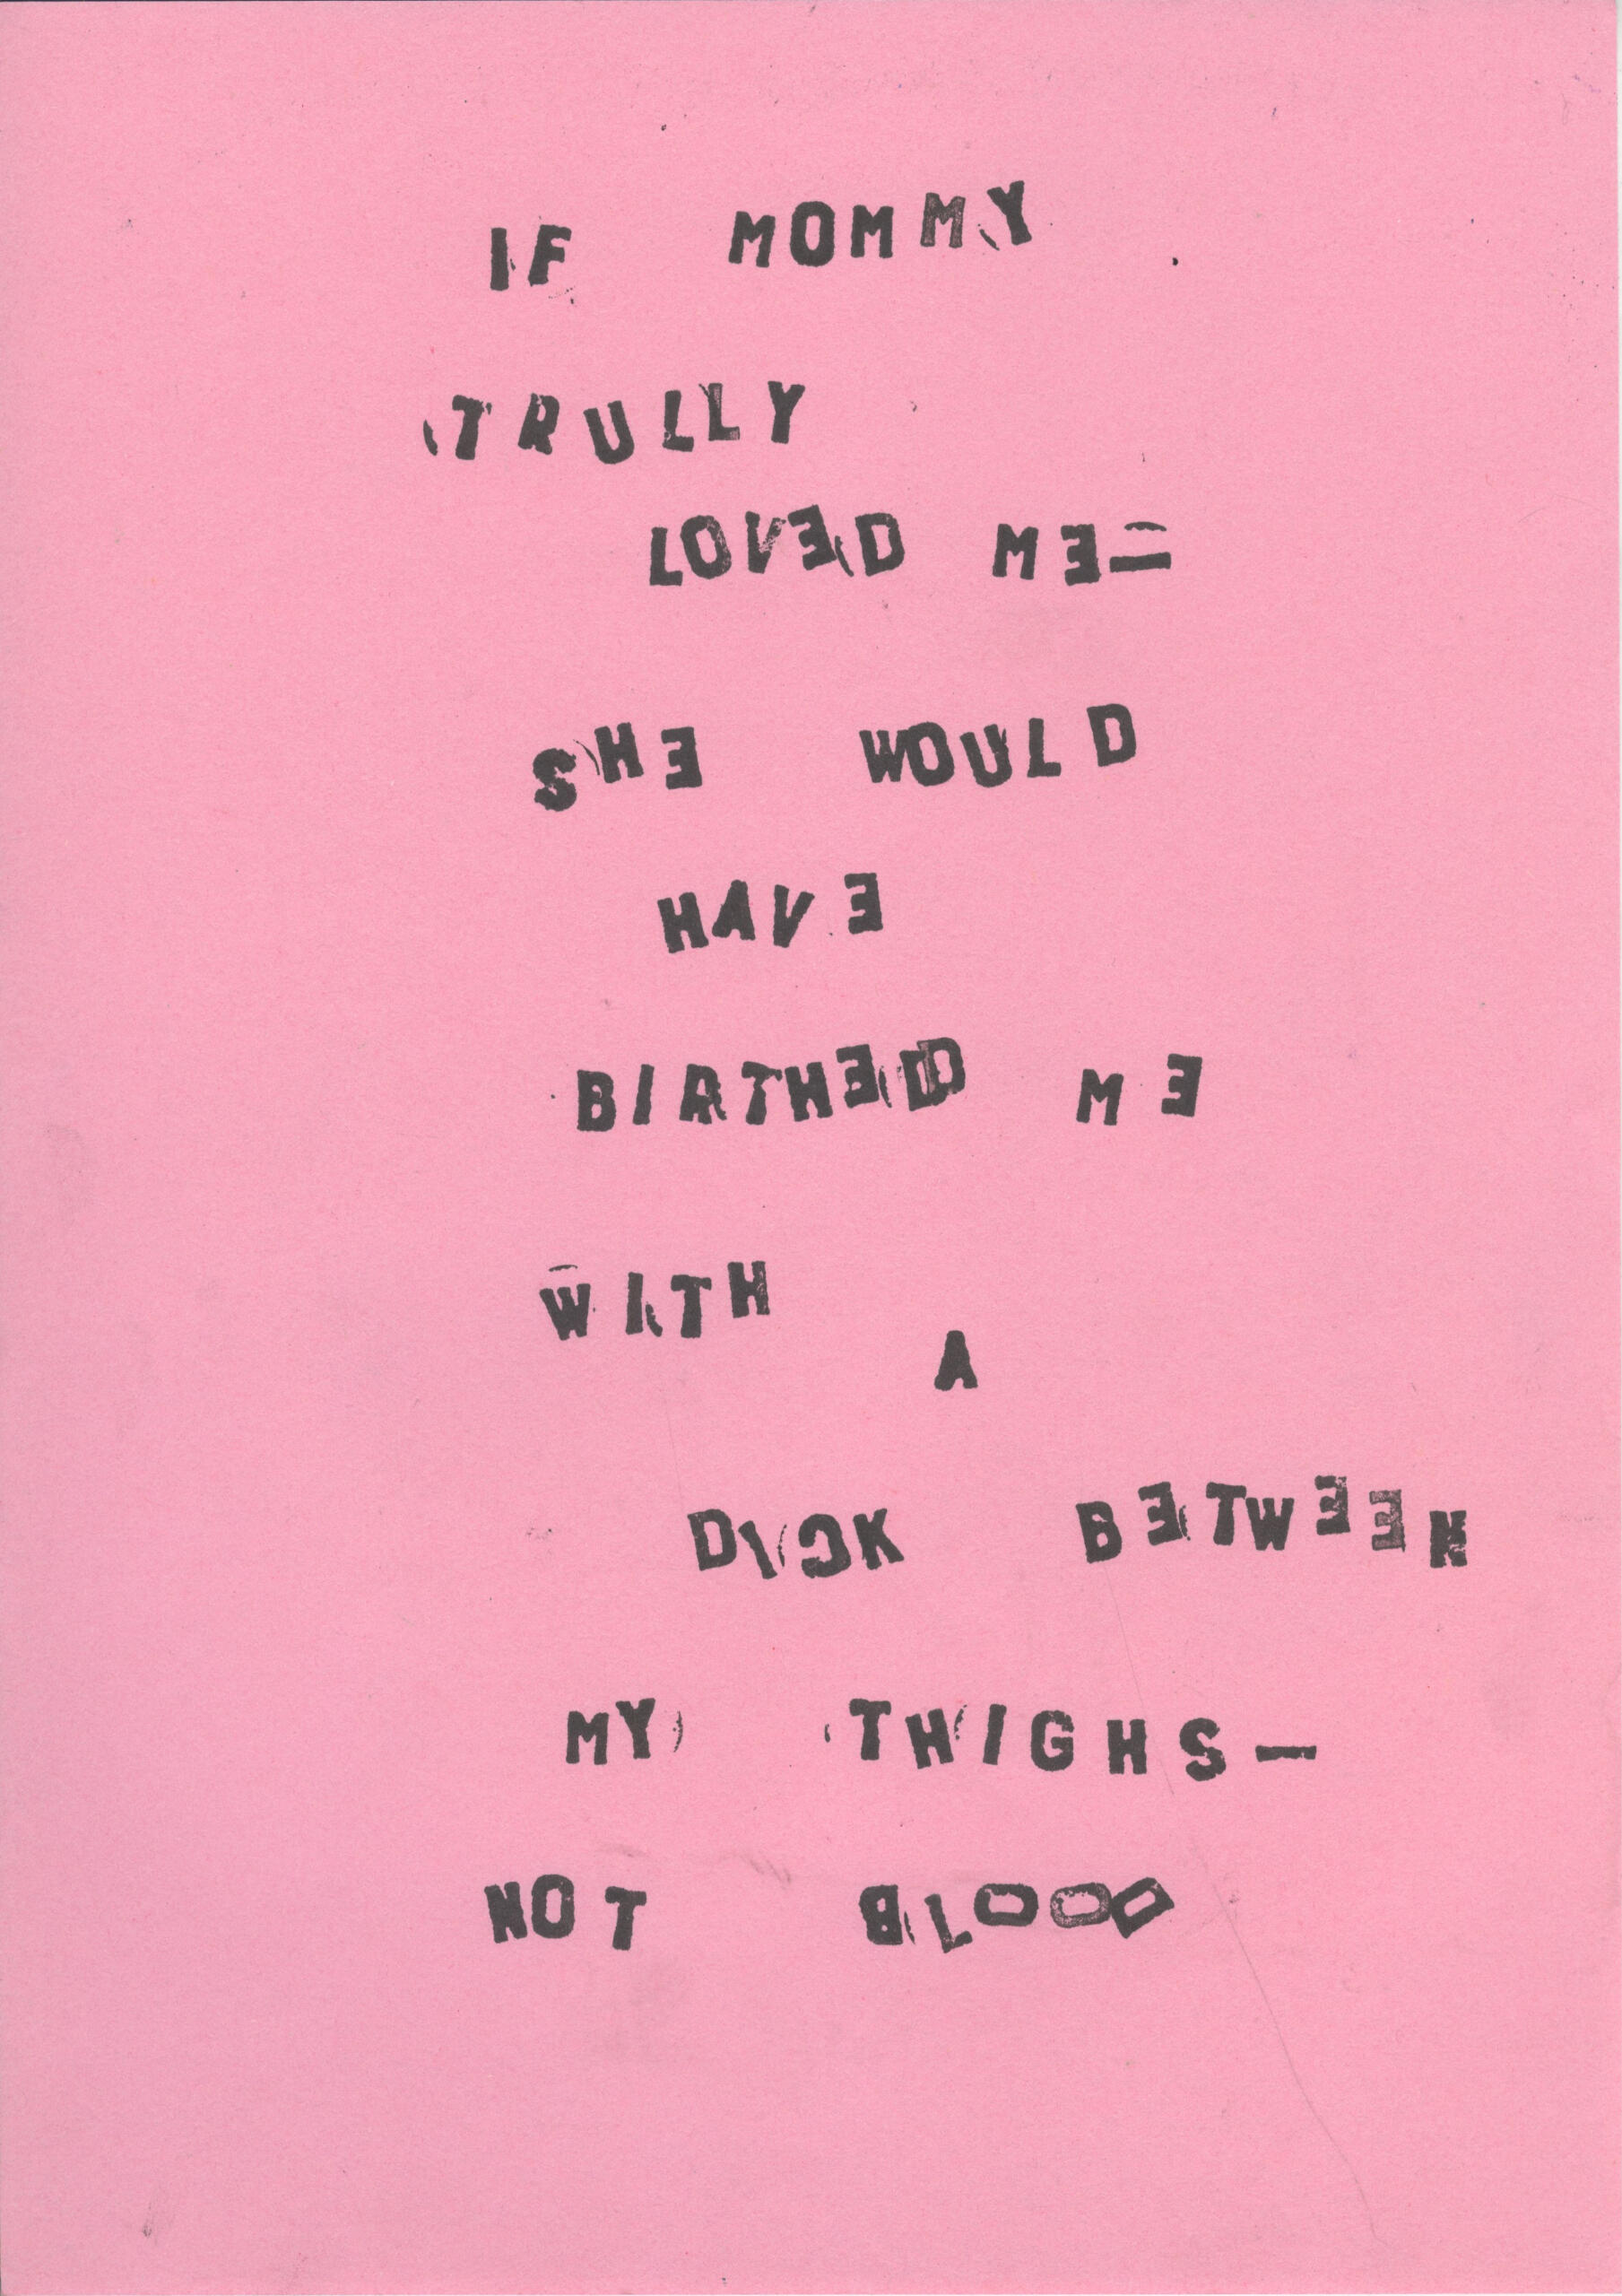 IF MOMMY
TRULLY
LOVED ME—
SHE WOULD
HAVE
BIRTHED ME
WITH
A
DICK BETWEEN
MY THIGHS—
NOT BLOOD